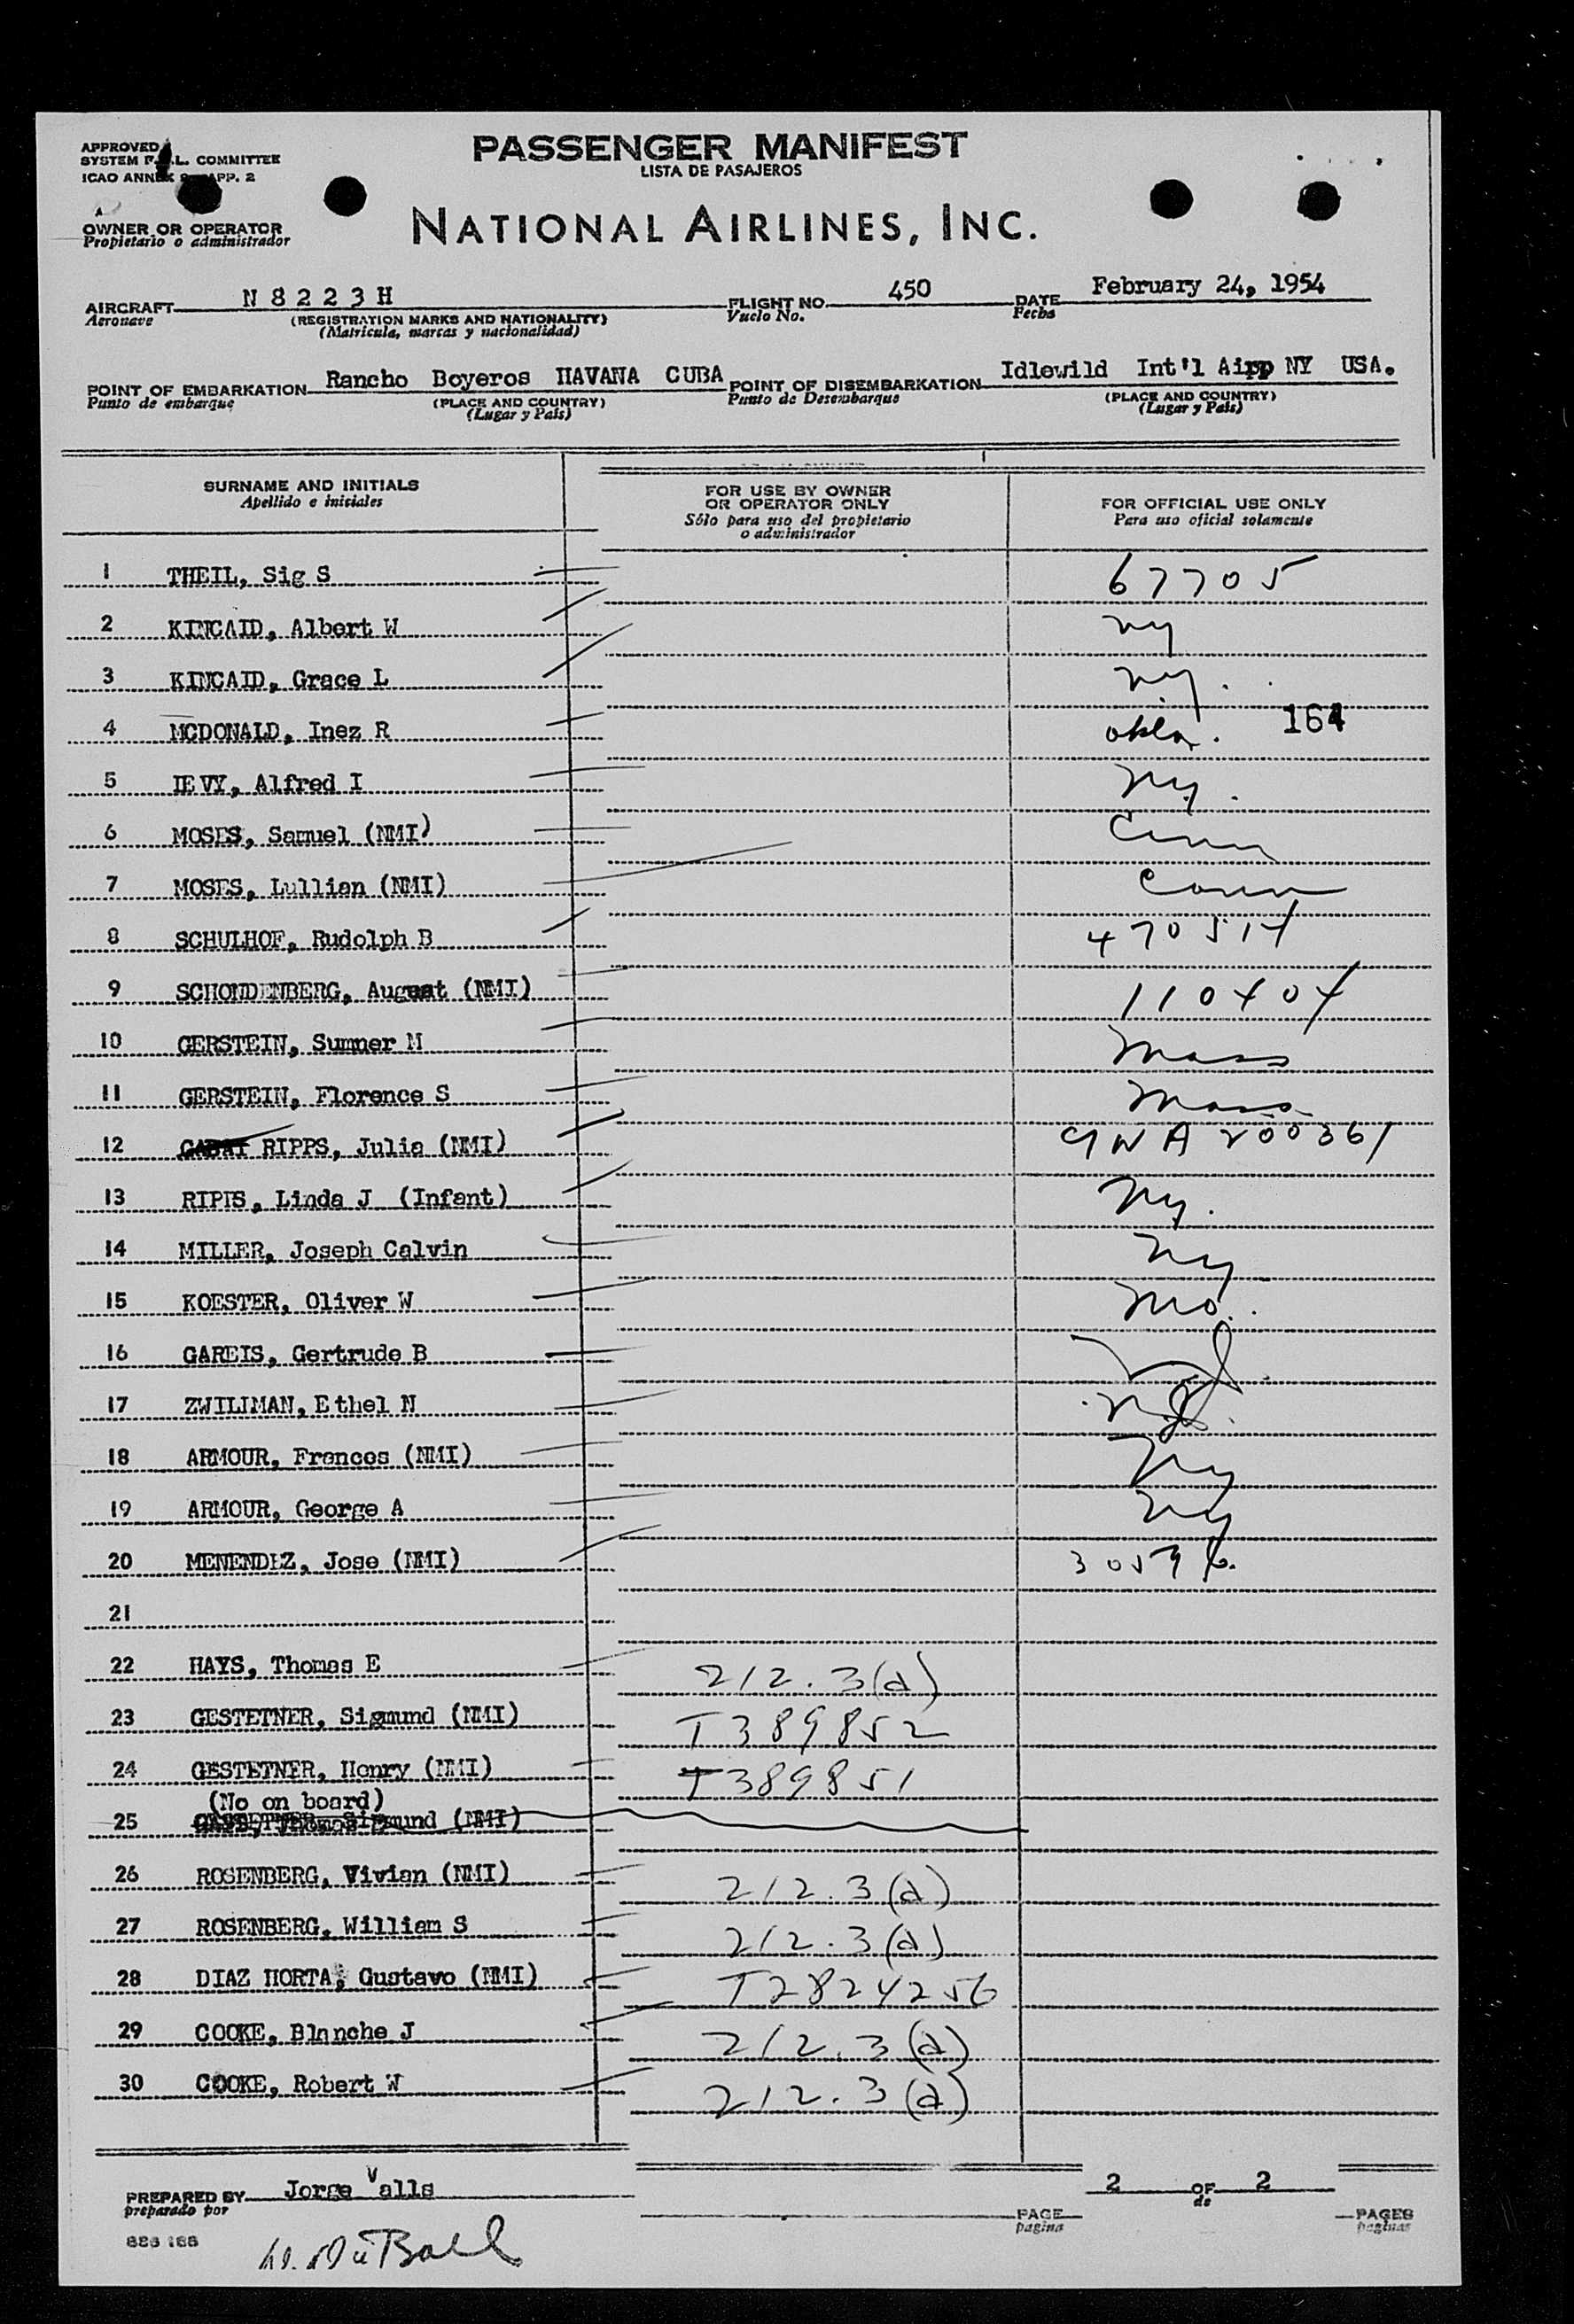 APPROVED
SYSTEM F.A.L. COMMITTEE
ICAO ANNEX 9 APP. 2
PASSENGER MANIFEST
LISTA DE PASAJEROS
OWNER OR OPERATOR
Propietario o administrador
NATIONAL AIRLINES, INC.
AIRCRAFT N 8 2 2 3 H FLIGHT NO. 450 DATE February 24, 1954
Aeronave (REGISTRATION MARKS AND NATIONALITY) Vuelo No. Fecha
(Matricula, marcas y nacionalidad)
POINT OF EMBARKATION Rancho Boyeros HAVANA CUBA POINT OF DISEMBARKATION Idlewild Int'l Airp NY USA.
Punto de embarque (PLACE AND COUNTRY) Punto de Desembarque (PLACE AND COUNTRY)
(Lugar y Pais) (Lugar y Pais)
SURNAME AND INITIALS FOR USE BY OWNER OR OPERATOR ONLY FOR OFFICIAL USE ONLY
Apellido e iniciales Sólo para uso del propietario o administrador Para uso oficial solamente
1 THEIL, Sig S 67705
2 KINCAID, Albert W ny
3 KINCAID, Grace L ny.
4 MCDONALD, Inez R okla. 164
5 LEVY, Alfred I ny.
6 MOSES, Samuel (NMI) Conn
7 MOSES, Lullian (NMI) Conn
8 SCHULHOF, Rudolph B 470514
9 SCHONDENBERG, August (NMI) 110404
10 GERSTEIN, Sumner M Mass
11 GERSTEIN, Florence S Mass
12 RIPPS, Julia (NMI) 9NA200361
13 RIPPS, Linda J (Infant) ny.
14 MILLER, Joseph Calvin ny
15 KOESTER, Oliver W Mo.
16 GAREIS, Gertrude B
17 ZWILLMAN, Ethel N
18 ARMOUR, Frances (NMI) ny
19 ARMOUR, George A ny
20 MENENDEZ, Jose (NMI) 30596
21
22 HAYS, Thomas E 212.3(d)
23 GESTETNER, Sigmund (NMI) T389852
24 GESTETNER, Henry (NMI) T389851
(No on board)
25 GESTETNER, Sigmund (NMI)
26 ROSENBERG, Vivian (NMI) 212.3(d)
27 ROSENBERG, William S 212.3(d)
28 DIAZ HORTA, Gustavo (NMI) T2824256
29 COOKE, Blanche J 212.3(d)
30 COOKE, Robert W 212.3(d)
PREPARED BY Jorge Valls PAGE 2 OF 2 PAGES
preparado por pagina de paginas